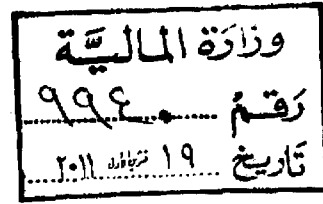 وزارة المالية
رقم ٩٩٤٠
تاريخ ١٩ تشرين الأول ٢٠١١